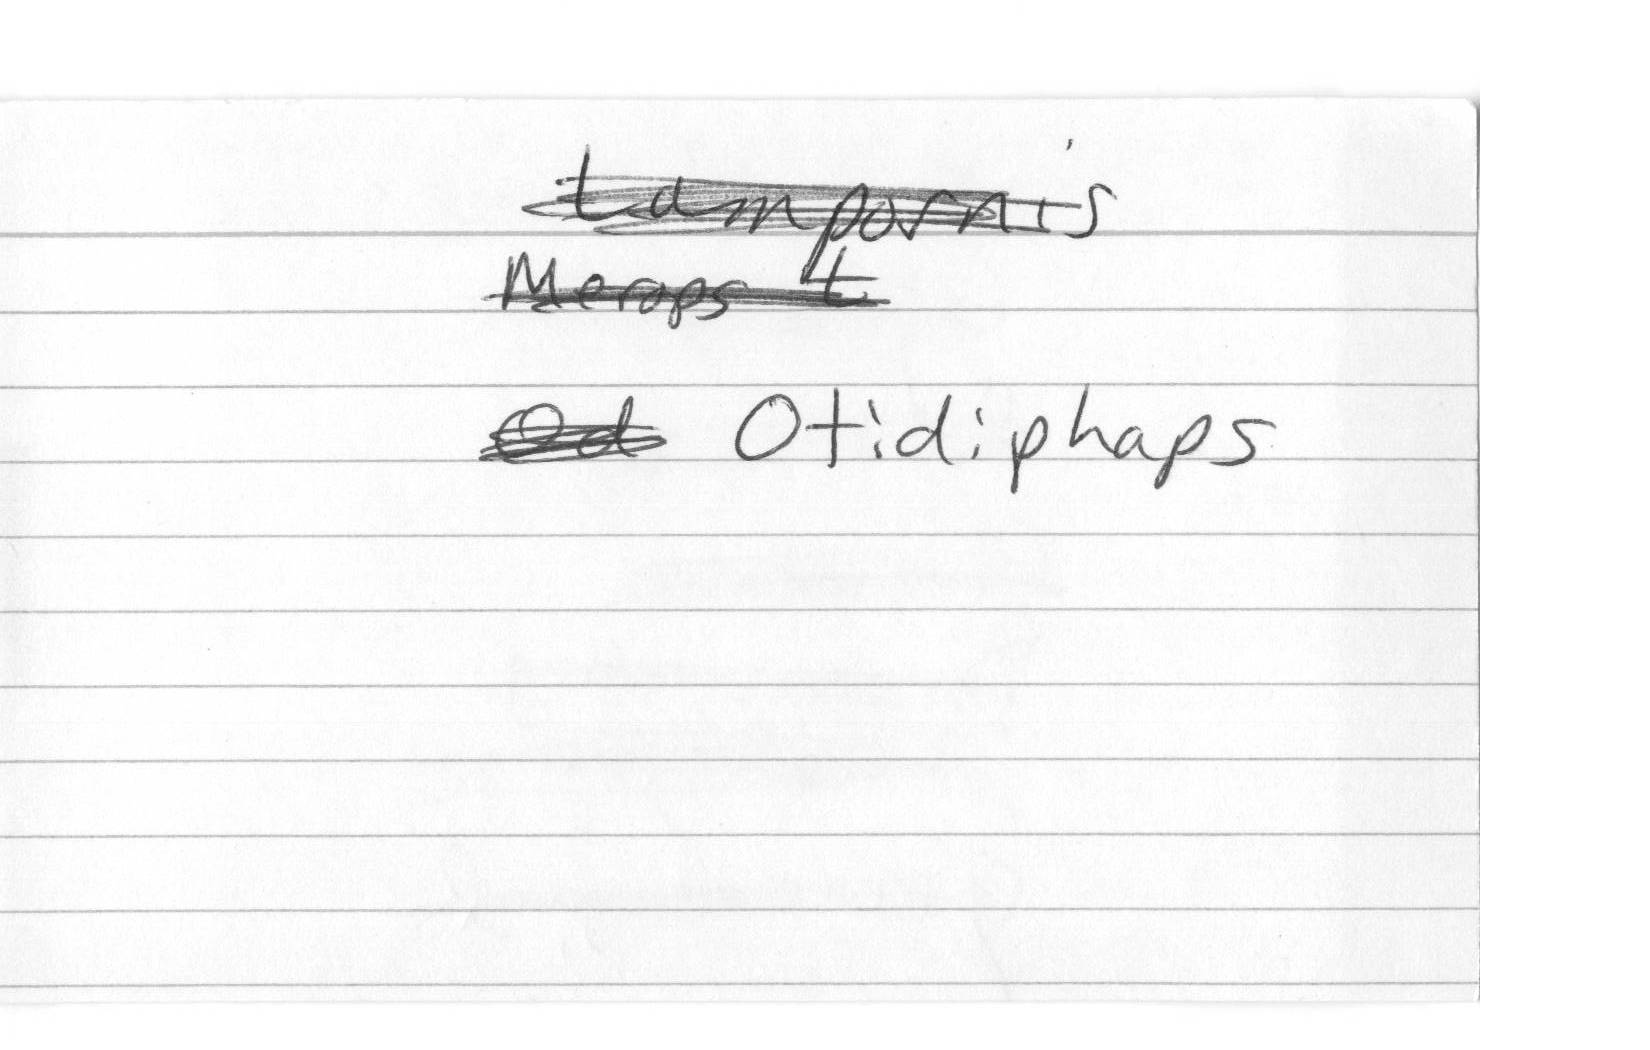 Lampornis
Merops t
Od Otidiphaps